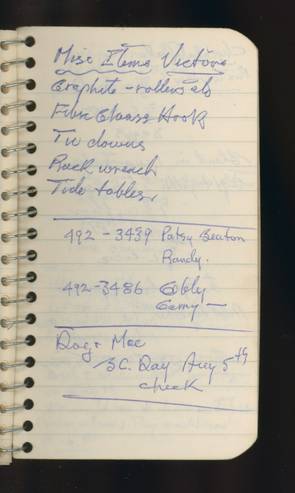 Misc Items Victoria
Graphite - rollers etc
Fibre Glass Hook
Tie downs
Rack wrench
Tide tables.
492-3439 Patsy Seaton
Randy.
492-3486
Gerry —
Dog + Mac
BC. Day Aug 5th
check